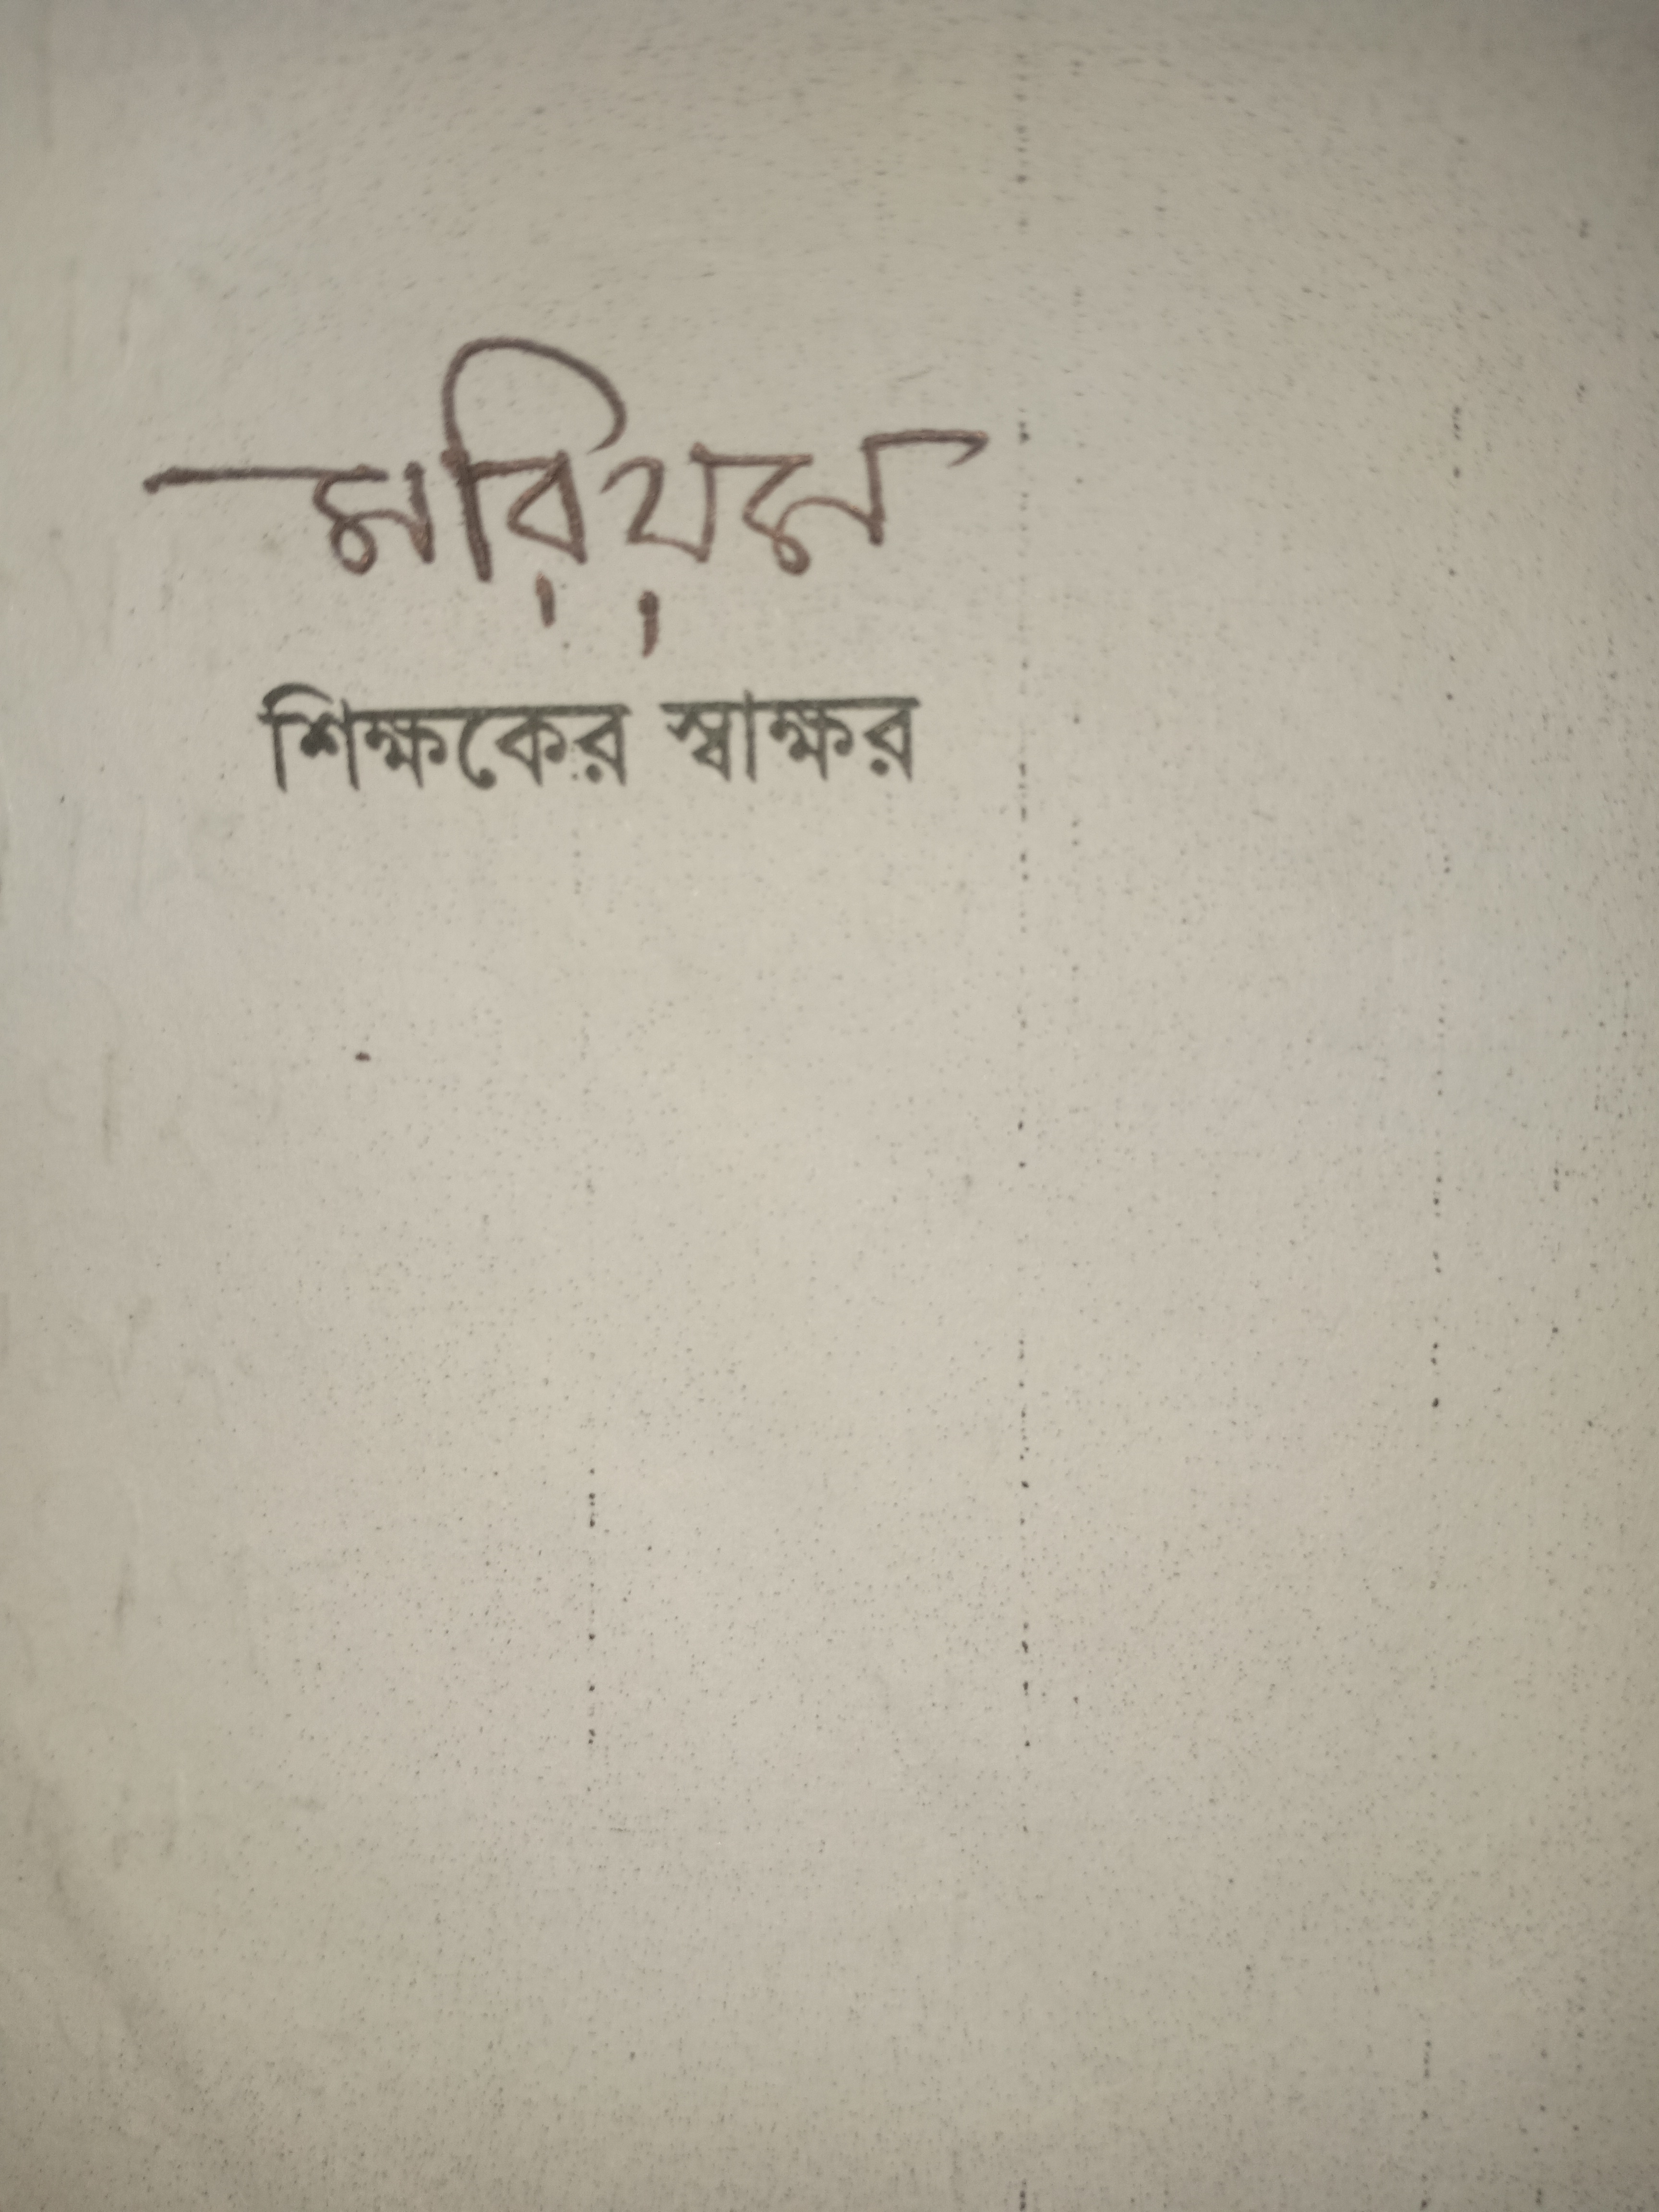 মরিয়ম
শিক্ষকের স্বাক্ষর